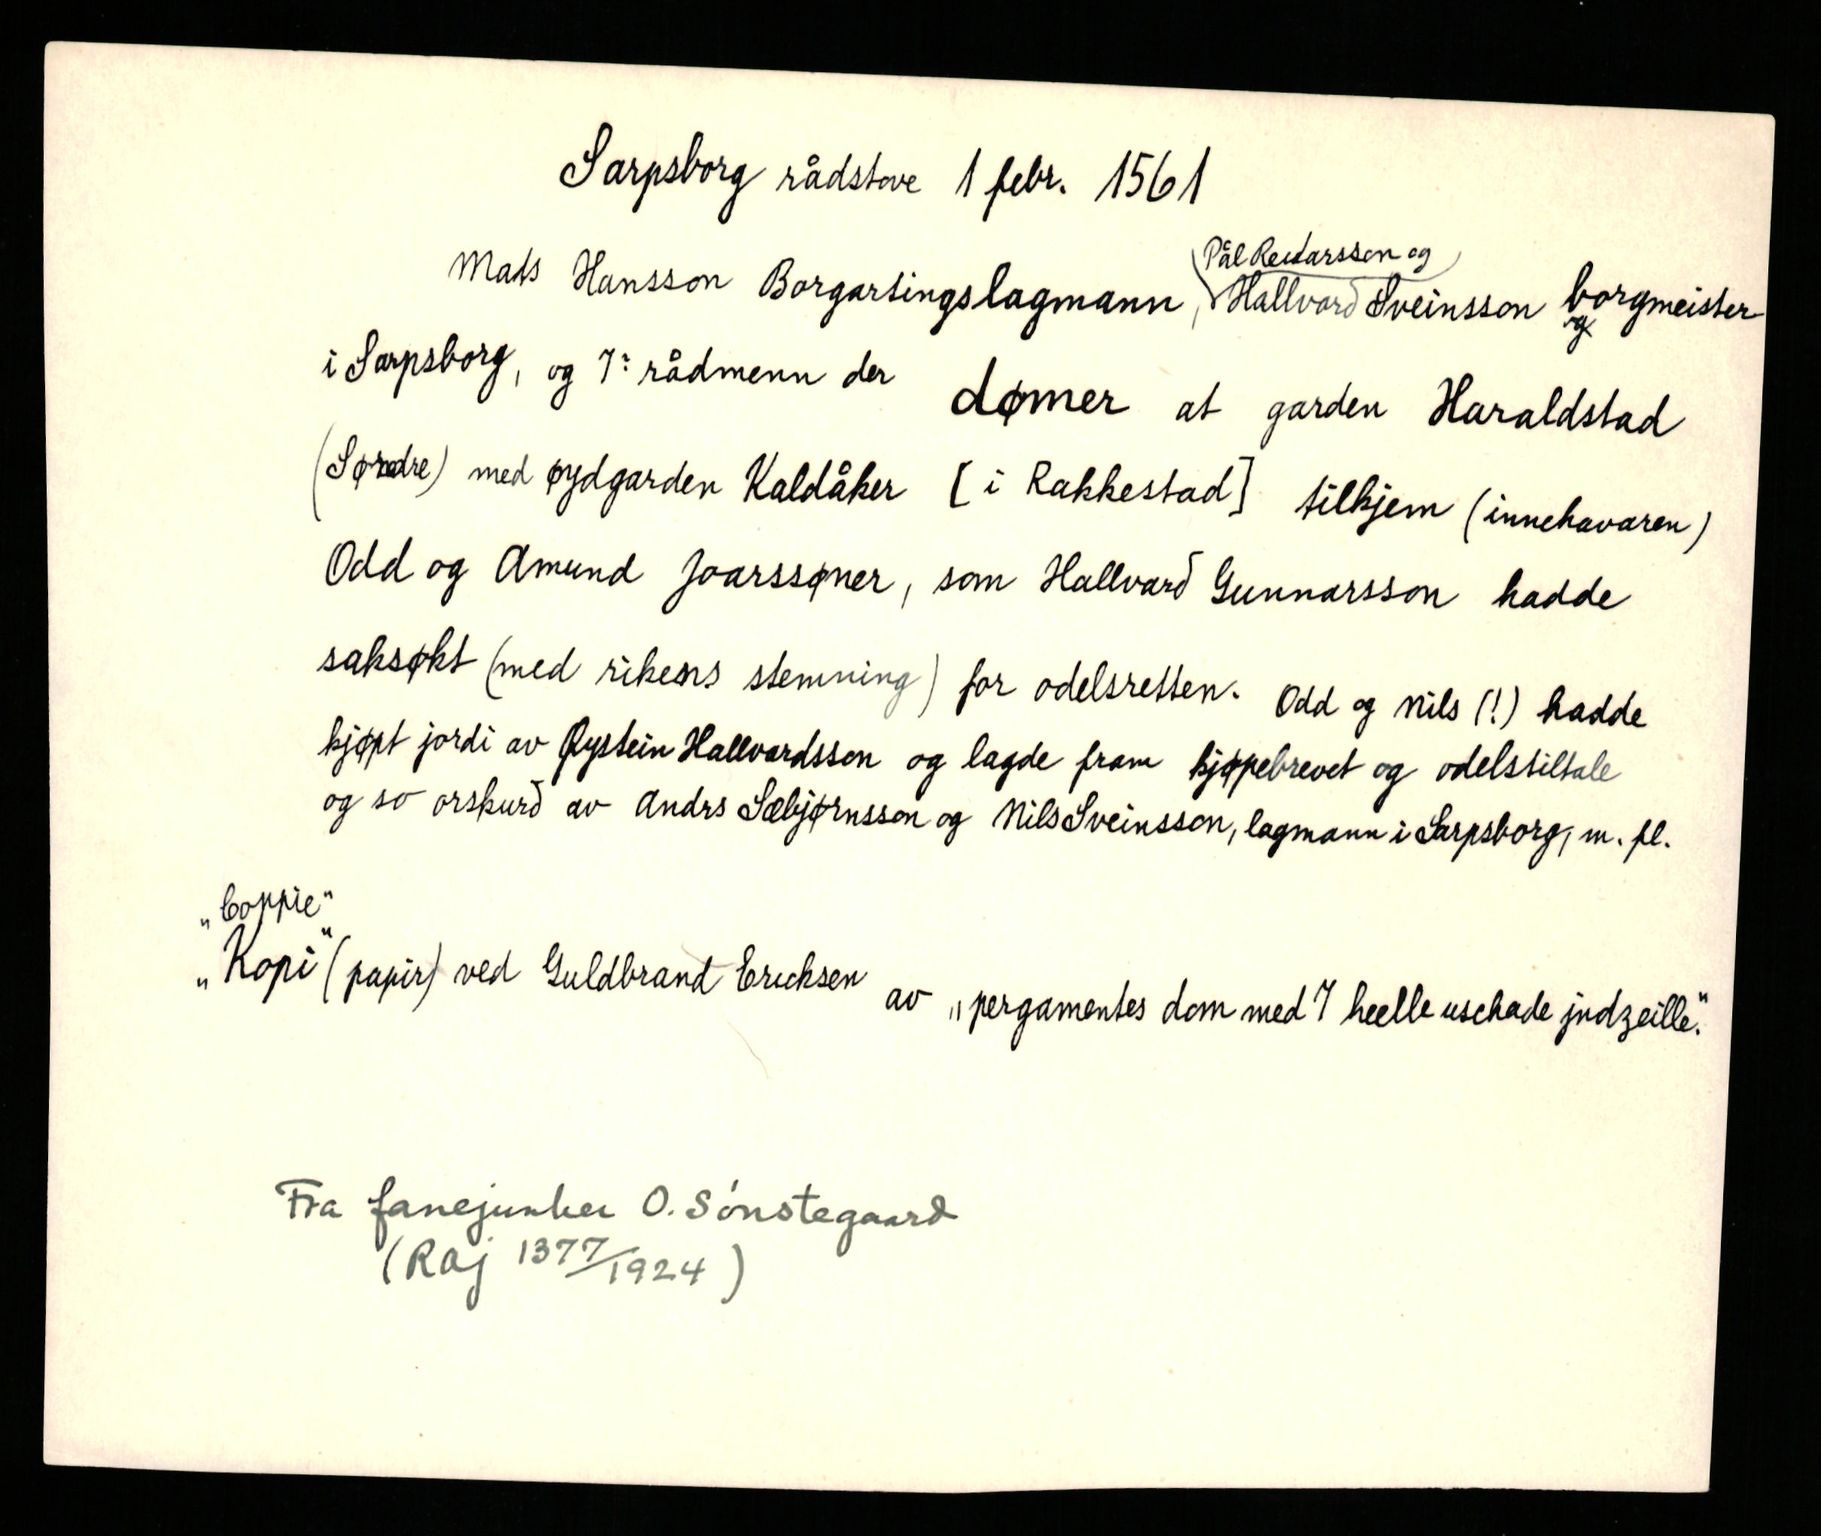 Sarpsborg rådstove 1 febr. 1561
Pål Reidarsson og
Mats Hansson Borgartingslagmann, Hallvard Sveinsson borgmeister
og
i Sarpsborg, og 7 rådmenn der dømer at garden Haraldstad
(Søndre) med øydgarden Kaldåker [i Rakkestad] tilkjem (innehavaren)
Odd og Amund Joarssøner, som Hallvard Gunnarsson hadde
saksøkt (med rikens stemning) for odelsretten. Odd og Nils (!) hadde
kjøpt jordi av Øystein Hallvardsson og lagde fram kjøpebrevet og odelstiltale
og so orskurd av Andrs Sæbjørnsson og Nils Sveinsson, lagmann i Sarpsborg, m. fl.
„Coppie"
„Kopi" (papir) ved Guldbrand Ericksen av „pergamentes dom med 7 heelle uschade indzeille."
Fra fanejunker O. Sónstegaard
(Raj 1377/1924)